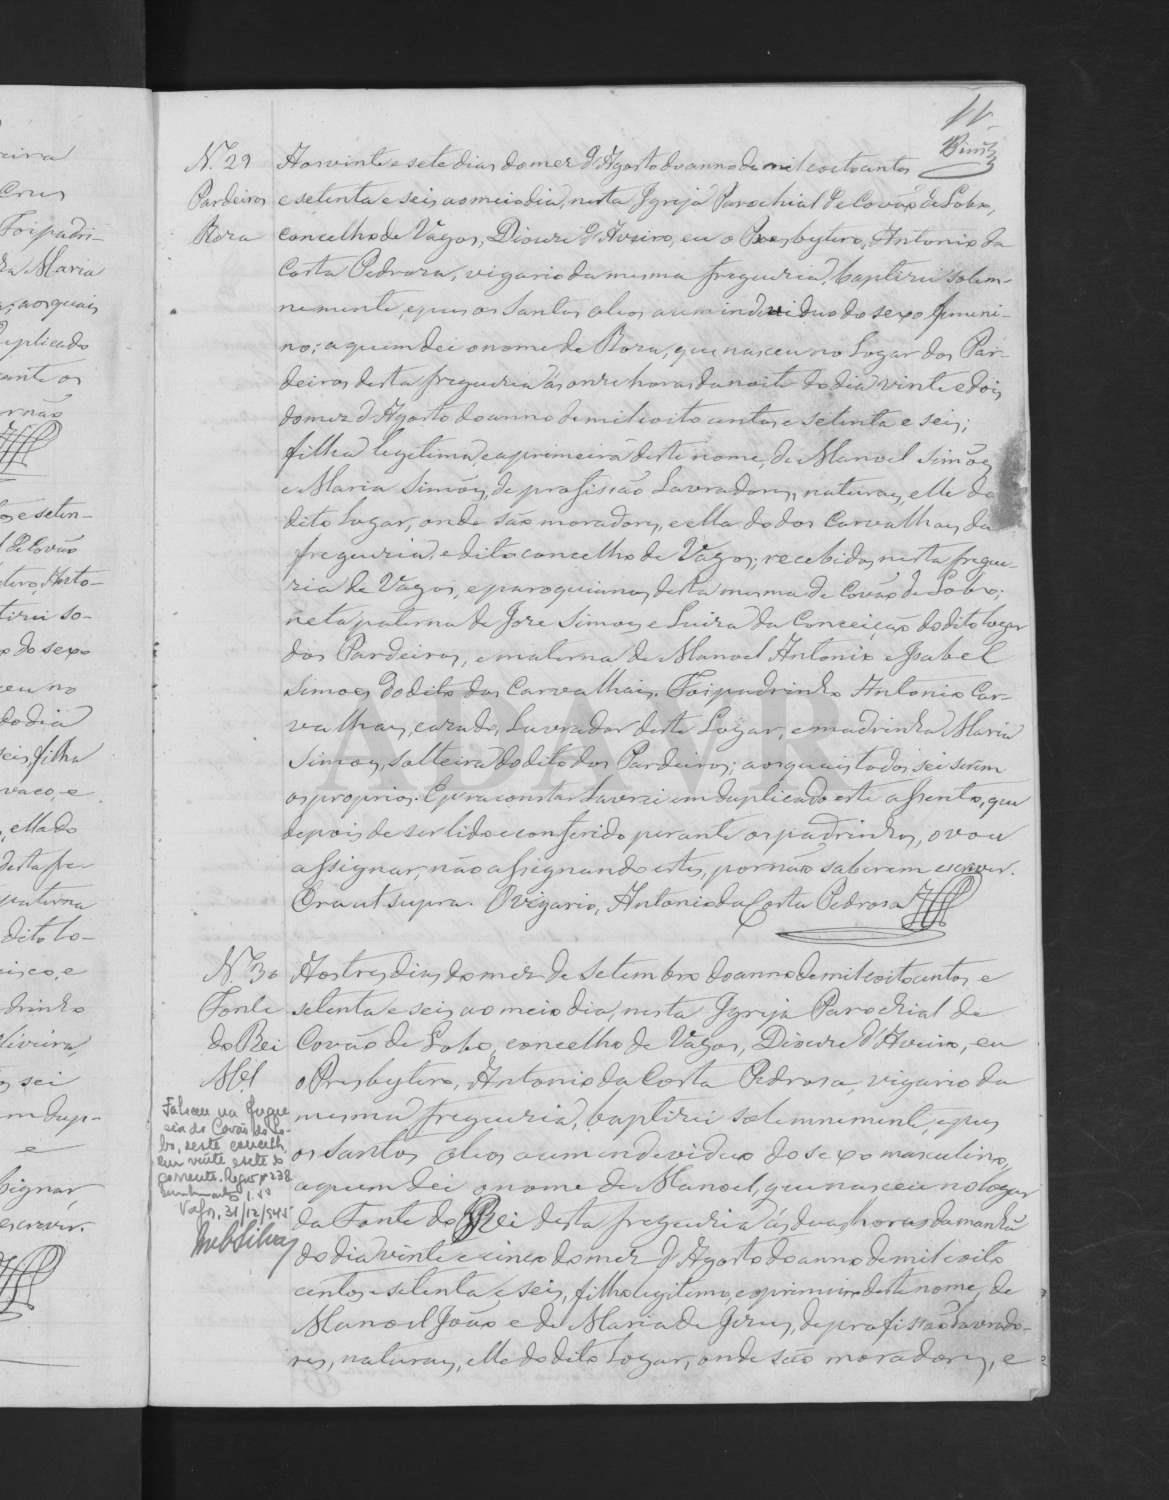 11
N.º 29
Pardeiros
Roza
Aos vinte e sete dias do mez d'Agosto do anno de mil oitocentos
e setenta e seis ao meio dia, nesta Igreja Parochial de Covão de Lobo,
concelho de Vagos, Diocese d'Aveiro, eu o Presbytero, Antonio da
Costa Pedrosa, vigario da mesma freguezia, baptizei solem-
nemente, e puz os Santos oleos a um individuo do sexo femeni-
no; a quem dei o nome de Roza, que nasceu no Logar dos Par-
deiros desta freguezia ás onze horas da noite do dia vinte e dois
do mez d'Agosto do anno de mil oito centos e setenta e seis;
filha legitima, e a primeira deste nome, de Manoel Simões
e Maria Simões, de profissão Lavradores, naturaes, elle do
dito Lugar, onde são moradores, e ella do dos Carvalhaes da
freguezia e dito concelho de Vagos; recebidos nesta fregue-
zia de Vagos, e paroquianos desta mesma de Covão de Lobo;
neta paterna de Jose Simões e Luiza da Conceição do dito logar
dos Pardeiros, e materna de Manoel Antonio e Isabel
Simões do dito dos Carvalhais. Foi padrinho Antonio Car-
valhaes, cazado, Lavrador deste Logar, e madrinha Maria
Simões, solteira do dito dos Pardeiros; aos quais todos sei serem
os proprios. E para constar Lavrei em duplicado este assento, que
depois de ser lido e conferido perante os padrinhos, o vou
assignar, não assignando estes, por não saberem escrever.
Era ut supra. O vigario, Antonio da Costa Pedrosa
N.º 30
Fonte
do Rei
M.el
Aos tres dias do mez de Setembro do anno de mil oitocentos e
setenta e seis ao meio dia, nesta Igreja Parochial de
Covão de Lobo, concelho de Vagos, Diocese d'Aveiro, eu
o Presbytero, Antonio da Costa Pedrosa, vigario da
mesma freguezia, baptizei solemnemente, e puz
os Santos oleos a um endeviduo do sexo masculino,
a quem dei o nome de Manoel, que nasceu no logar
da Fonte do Rei desta freguezia ás duas horas da manhã
do dia vinte e cinco do mez d'Agosto do anno de mil e oito
centos e setenta e seis, filho legitimo, e o primeiro deste nome, de
Manoel João e de Maria de Jezus, de profissão Lavrado-
res, naturaes, elle do dito Logar, onde são moradores, e
Faleceu na fregue
sia do Covão do Lo-
bo, deste concelho,
em vinte e sete do
corrente. Registo nº 238
Vagos, 31/12/945
ADAVR